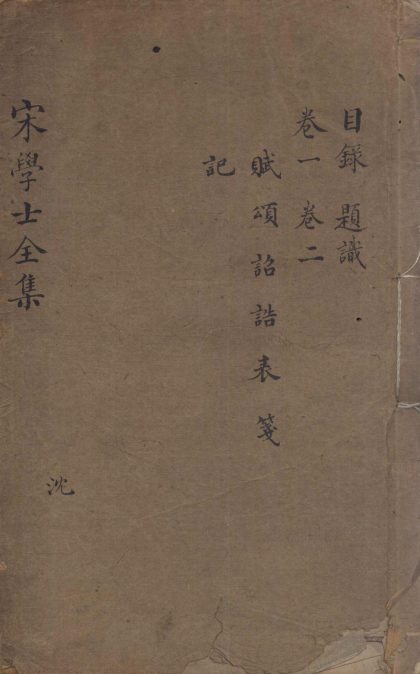 目錄 題識
卷一 卷二
賦 頌 詔 誥 表 箋
記
沈
宋學士全集